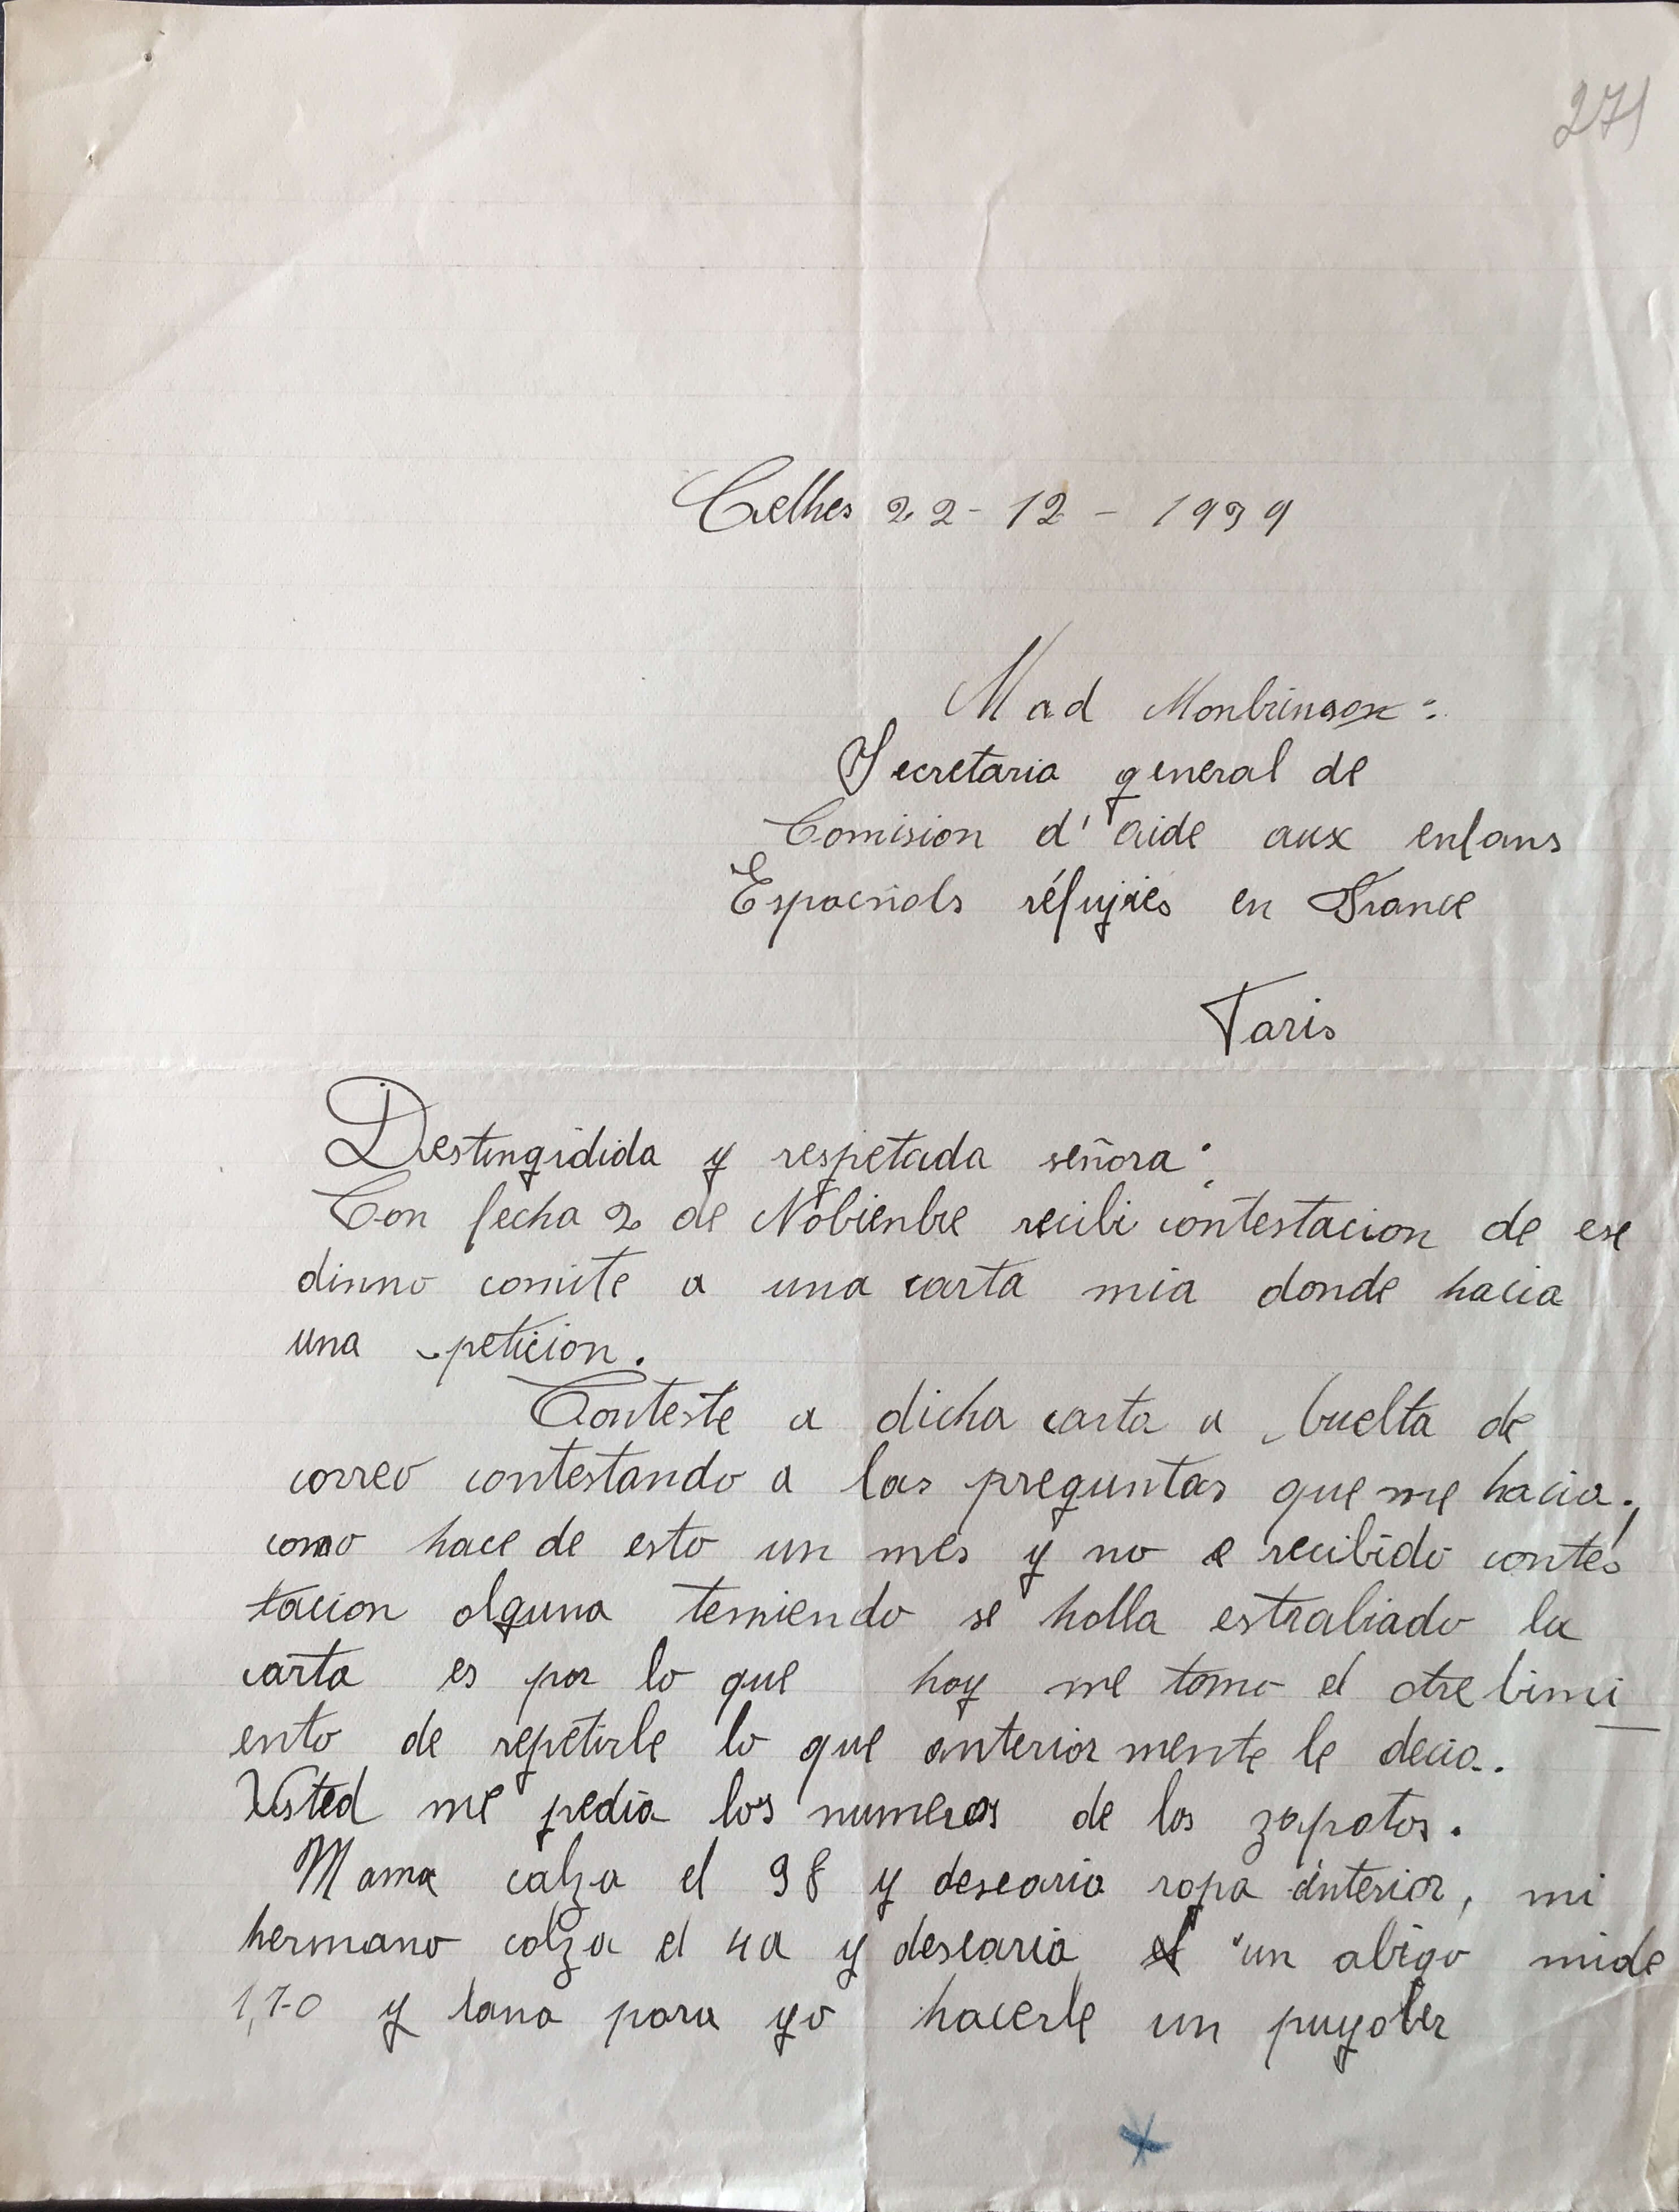 271
Celhes 22-12-1939
Mad Monbrinson:
Secretaria general de
Comision d'aide aux enfans
Espacñols réfujiés en France
Paris
Destingidida y respetada señora:
Con fecha 2 de Nobienbre recibi contestacion de ese
dinno comite a una carta mia donde hacia
una peticion.
Conteste a dicha carta a buelta de
correo contestando a las preguntas que me hacia;
como hace de esto un mes y no e recibido contes
tacion alguna temiendo se halla estrabiado la
carta es por lo que hoy me tomo el atrebimi
ento de repetirle lo que anterior mente le decia.
Usted me pedia los numeros de los zapatos.
Mama calza el 38 y desearia ropa interior, mi
hermano calza el 40 y desearia un abigo mide
1,70 y lana para yo hacerle un puyober